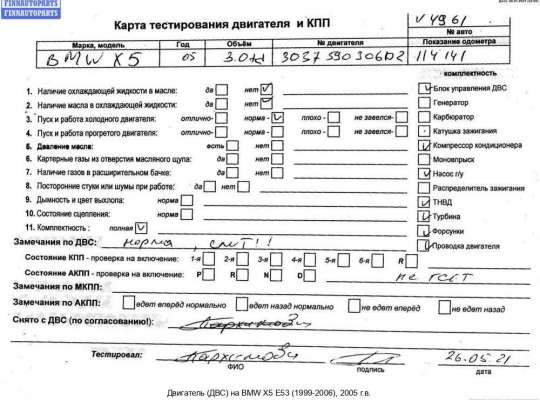 FINNAUTOPARTS
FINNAUTOPARTS
Карта тестирования двигателя и КПП
V4961
№ авто
Марка, модель Год Объём № двигателя Показание одометра
BMW X5 05 3.0td 3037590306D2 114141
комплектность
1. Наличие охлаждающей жидкости в масле: да нет
Блок управления ДВС
2. Наличие масла в охлаждающей жидкости: да нет
Генератор
3. Пуск и работа холодного двигателя: отлично- норма - плохо - не завелся-
Карбюратор
4. Пуск и работа прогретого двигателя: отлично- норма - плохо - не завелся-
Катушка зажигания
5. Давление масла: есть нет
Компрессор кондиционера
6. Картерные газы из отверстия масляного щупа: да нет
Моновпрыск
7. Наличие газов в расширительном бачке: да нет
Насос г/у
8. Посторонние стуки или шумы при работе: да нет
Распределитель зажигания
9. Дымность и цвет выхлопа: норма
ТНВД
10. Состояние сцепления: норма
Турбина
11. Комплектность : полная
Форсунки
Замечания по ДВС: норма,
Проводка двигателя
Состояние КПП - проверка на включение: 1-я 2-я 3-я 4-я 5-я 6-я R
Состояние АКПП - проверка на включение: P R N D
Замечания по МКПП:
Замечания по АКПП: едет вперёд нормально едет назад нормально не едет вперёд не едет назад
Снято с ДВС (по согласованию!):
Тестировал: 26.05.21
ФИО подпись дата
Двигатель (ДВС) на BMW X5 E53 (1999-2006), 2005 г.в.